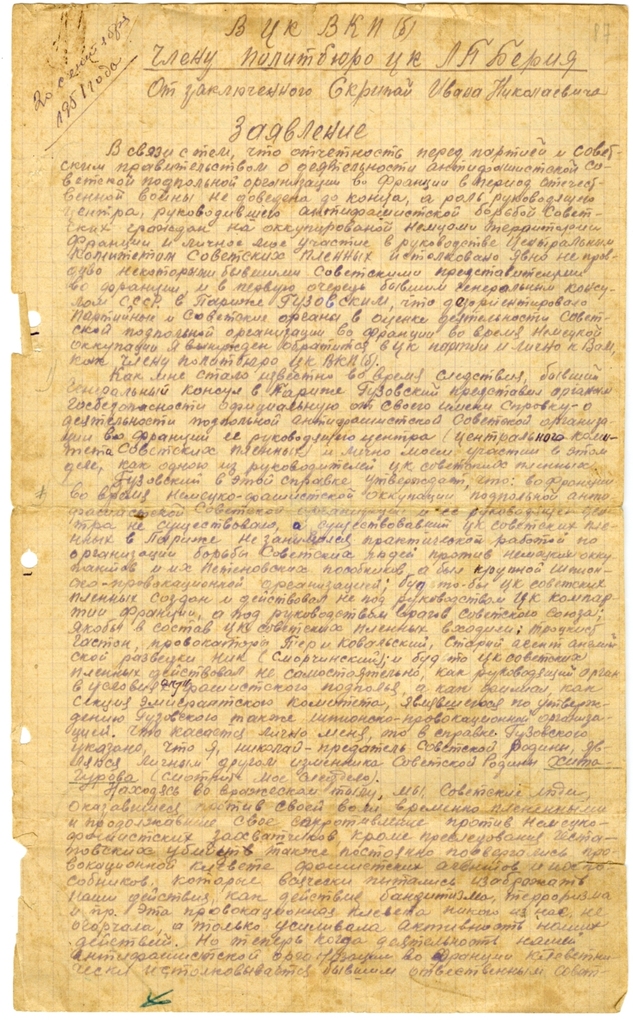 87
20 сентября
1951 года
В ЦК ВКП(б)
члену политбюро ЦК Л П Берия
От заключенного Скрипай Ивана Николаевича
Заявление
В связи с тем, что отчетность перед партией и Совет-
ским правительством о деятельности антифашистской Со-
ветской подпольной организации во Франции в период отечест-
венной войны не доведена до конца, а роль руководящего
центра, руководившего антифашистской борьбой Совет-
ских граждан на оккупированой немцами территории
Франции и личное мое участие в руководстве Центральным
Комитетом Советских Пленных истолковано явно не прав-
диво некоторыми бывшими Советскими представителями
во Франции, и в первую очередь бывшим генеральным консу-
лом СССР в Париже Гузовским, что дезориентировало
Партийные и Советские органы в оценке деятельности Совет-
ской подпольной организации во Франции во время Немецкой
оккупации я вынужден обратится в ЦК партии и лично к Вам,
как члену политбюро ЦК ВКП(б).
Как мне стало известно во время следствия, бывший
генеральный Консул в Париже Гузовский представил органам
госбезопасности официальную от своего имени справку о
деятельности подпольной антифашистской Советской организа-
ции во Франции ее руководящего центра (центрального коми-
тета Советских пленных) и лично моем участии в этом
деле, как одного из руководителей ЦК советских пленных.
Гузовский в этой справке утверждает, что: во Франции
во время Немецко-фашистской оккупации подпольной анти-
фашистской Советской организации и ее руководящего цен-
тра не существовало, а существовавший ЦК советских плен-
ных в Париже не занимался практической работой по
организации борьбы Советских людей против немецких окку-
пантов и их Петеновских пособников а был крупной шпион-
ско-провокационной организацией; буд то-бы ЦК советских
пленных создан и действовал не под руководством ЦК компар-
тии Франции, а под руководством врагов Советского Союза;
якобы в состав ЦК советских пленных входили: троцкист
Гастон, провокатора Пери Ковальский, старый агент англий-
ской разведки Ник (Сморчинский); и буд то ЦК советских
пленных действовал не самостоятельно, как руководящий орган
в условия анти фашистского подполья, а как филиал, как
секция Эмигрантского комитета, являвшегося по утверж-
дению Гузовского также шпионско-провокационной организа-
цией. Что касается лично меня, то в справке Гузовского
указано, что Я, Николай - предатель Советской Родины, яв-
лялся личным другом изменника Советской Родины Хета-
гурова (смотрит мое следдело).
Находясь во вражеском тылу, мы, Советские люди
оказавшиеся против своей воли временно пленными
и продолжавшие свое сопротивление против немецко-
фашистских захватчиков кроме преследования геста-
повских убийств также постоянно подвергались про-
вокационной клевете фашистских агентов и их по-
собников, которые всячески пытались изображать
наши действия как действие бандитизма, терроризма
и пр. Эта провокационная клевета никого из нас не
огорчала, а только усиливала активность наших
действий. Но теперь когда деятельность нашей
антифашистской организации во Франции клеветни-
чески истолковывается бывшим ответственным Совет-